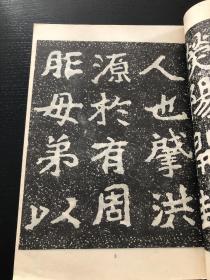 人也肇洪
源於有周
胙母弟以